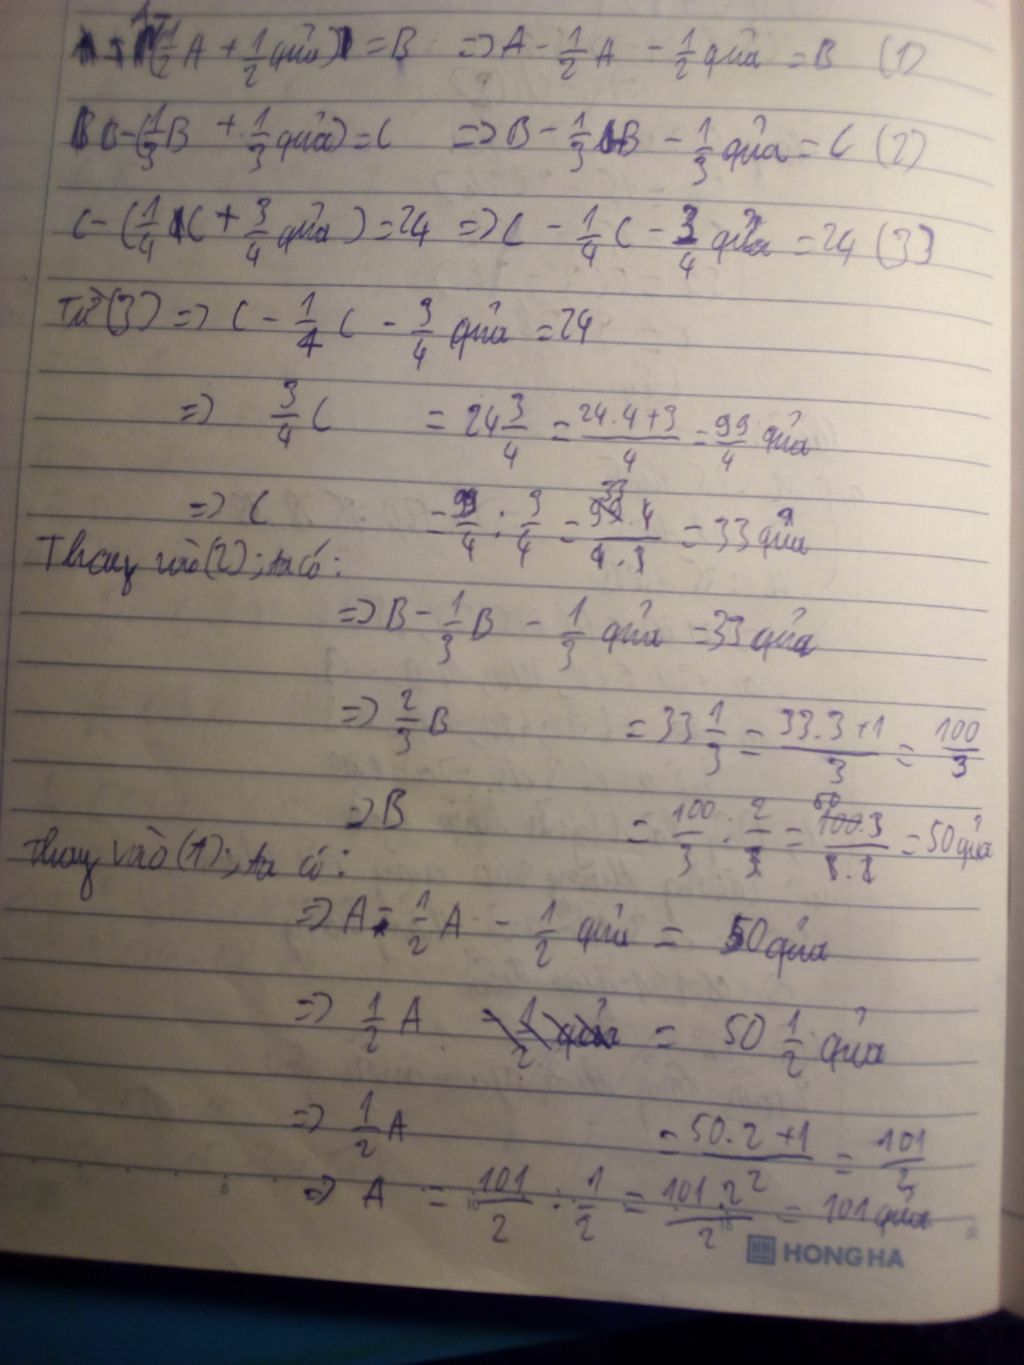 A - (1/2 A + 1/2 quả) = B => A - 1/2 A - 1/2 quả = B (1)
B - (1/3 B + 1/3 quả) = C => B - 1/3 B - 1/3 quả = C (2)
C - (1/4 C + 3/4 quả) = 24 => C - 1/4 C - 3/4 quả = 24 (3)
Từ (3) => C - 1/4 C - 3/4 quả = 24
=> 3/4 C = 24 3/4 = 24.4+3/4 = 99/4 quả
=> C = 99/4 : 3/4 = 99.4/4.3 = 33 quả
Thay vào (2); ta có:
=> B - 1/3 B - 1/3 quả = 33 quả
=> 2/3 B = 33 1/3 = 33.3+1/3 = 100/3
=> B = 100/3 : 2/3 = 100.3/3.2 = 50 quả
Thay vào (1); ta có:
=> A - 1/2 A - 1/2 quả = 50 quả
=> 1/2 A = 50 1/2 quả
=> 1/2 A = 50.2+1/2 = 101/2
=> A = 101/2 : 1/2 = 101.2/2 = 101 quả
HONG HA